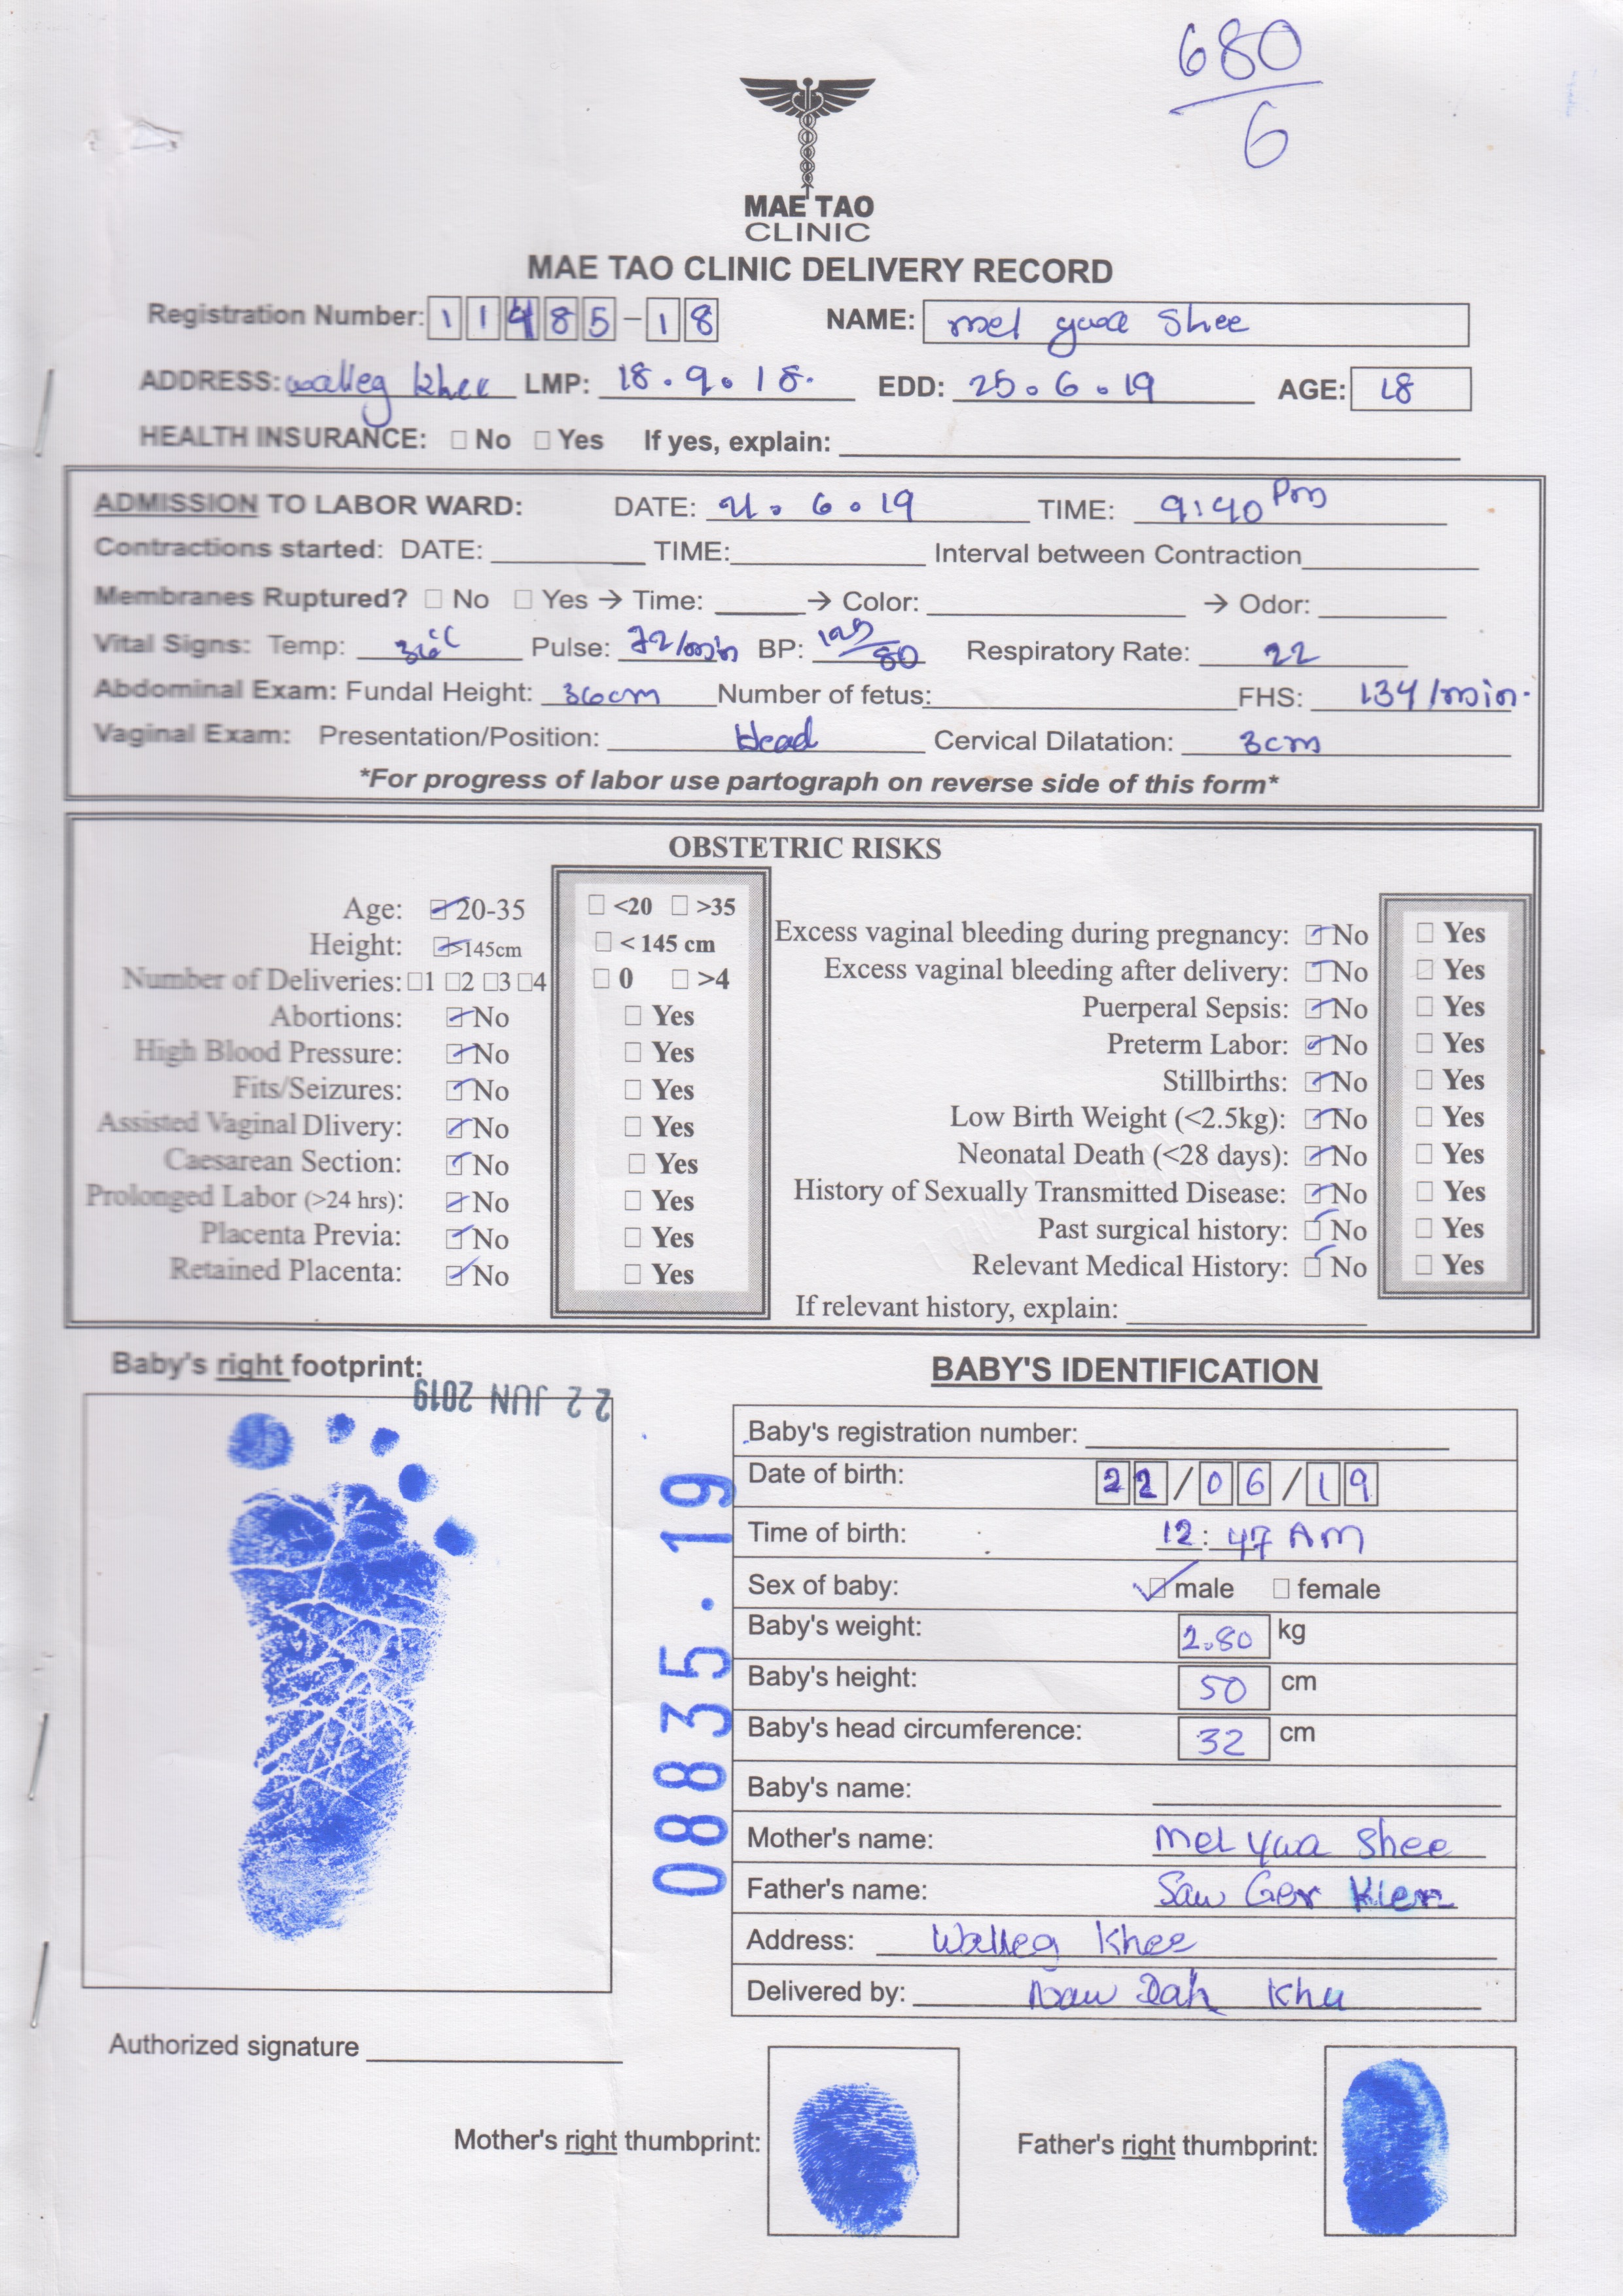 680
6
MAE TAO
CLINIC
MAE TAO CLINIC DELIVERY RECORD
Registration Number: 11485-18 NAME: mel ywa Shee
ADDRESS: walleg khee LMP: 18.9.18. EDD: 25.6.19 AGE: 18
HEALTH INSURANCE: □ No □ Yes If yes, explain:
ADMISSION TO LABOR WARD: DATE: 21.6.19 TIME: 9:40 Pm
Contractions started: DATE: TIME: Interval between Contraction
Membranes Ruptured? □ No □ Yes → Time: → Color: → Odor:
Vital Signs: Temp: 36°C Pulse: 72/min BP: /80 Respiratory Rate: 22
Abdominal Exam: Fundal Height: 36cm Number of fetus: FHS: 134/min.
Vaginal Exam: Presentation/Position: Head Cervical Dilatation: 3cm
*For progress of labor use partograph on reverse side of this form*
OBSTETRIC RISKS
Age: ☑ 20-35 □ <20 □ >35
Height: ☑ >145cm □ < 145 cm
Number of Deliveries: □1 □2 □3 □4 □ 0 □ >4
Abortions: ☑ No □ Yes
High Blood Pressure: ☑ No □ Yes
Fits/Seizures: ☑ No □ Yes
Assisted Vaginal Dlivery: ☑ No □ Yes
Caesarean Section: ☑ No □ Yes
Prolonged Labor (>24 hrs): ☑ No □ Yes
Placenta Previa: ☑ No □ Yes
Retained Placenta: ☑ No □ Yes
Excess vaginal bleeding during pregnancy: ☑ No □ Yes
Excess vaginal bleeding after delivery: ☑ No □ Yes
Puerperal Sepsis: ☑ No □ Yes
Preterm Labor: ☑ No □ Yes
Stillbirths: ☑ No □ Yes
Low Birth Weight (<2.5kg): ☑ No □ Yes
Neonatal Death (<28 days): ☑ No □ Yes
History of Sexually Transmitted Disease: ☑ No □ Yes
Past surgical history: ☑ No □ Yes
Relevant Medical History: ☑ No □ Yes
If relevant history, explain:
Baby's right footprint:
22 JUN 2019
08835.19
BABY'S IDENTIFICATION
Baby's registration number:
Date of birth: 22/06/19
Time of birth: 12:47 AM
Sex of baby: ☑ male □ female
Baby's weight: 2.80 kg
Baby's height: 50 cm
Baby's head circumference: 32 cm
Baby's name:
Mother's name: Mel Ywa Shee
Father's name: Saw Ger Kler
Address: Walleg Khee
Delivered by: Naw Dah Khu
Authorized signature
Mother's right thumbprint:
Father's right thumbprint: